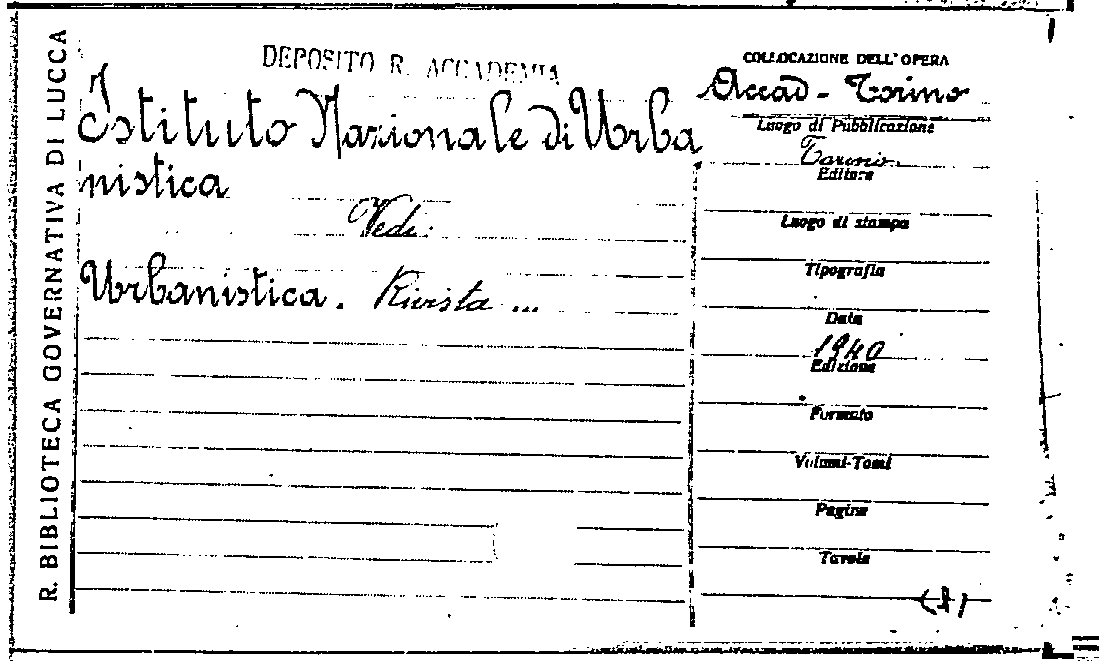 R. BIBLIOTECA GOVERNATIVA DI LUCCA
DEPOSITO R. ACCADEMIA
Istituto Nazionale di Urba
nistica
Vedi:
Urbanistica. Rivista ...
COLLOCAZIONE DELL'OPERA
Accad - Torino
Luogo di Pubblicazione
Torino
Editore
Luogo di stampa
Tipografia
Data
1940
Edizione
Formato
Volumi-Tomi
Pagine
Tavole